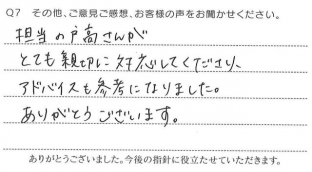 Q7 その他、ご意見ご感想、お客様の声をお聞かせください。
担当の戸高さんが
とても親切に対応してくださり、
アドバイスも参考になりました。
ありがとうございます。
ありがとうございました。今後の指針に役立たせていただきます。